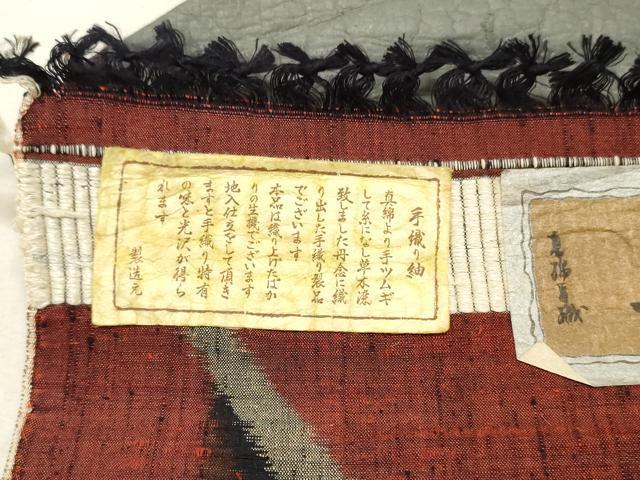 手織り紬
真綿より手ツムギ
して糸になし草木染
致しました丹念に織
り出した手織り製品
でございます
本品は織り上げたばか
りの生機でございます
地入仕立をして頂き
ますと手織り特有
の味と光沢が得ら
れます
製造元
真綿